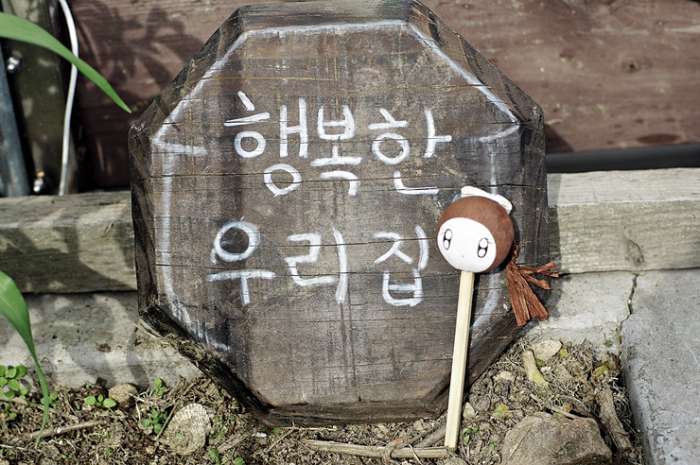 행복한
우리집